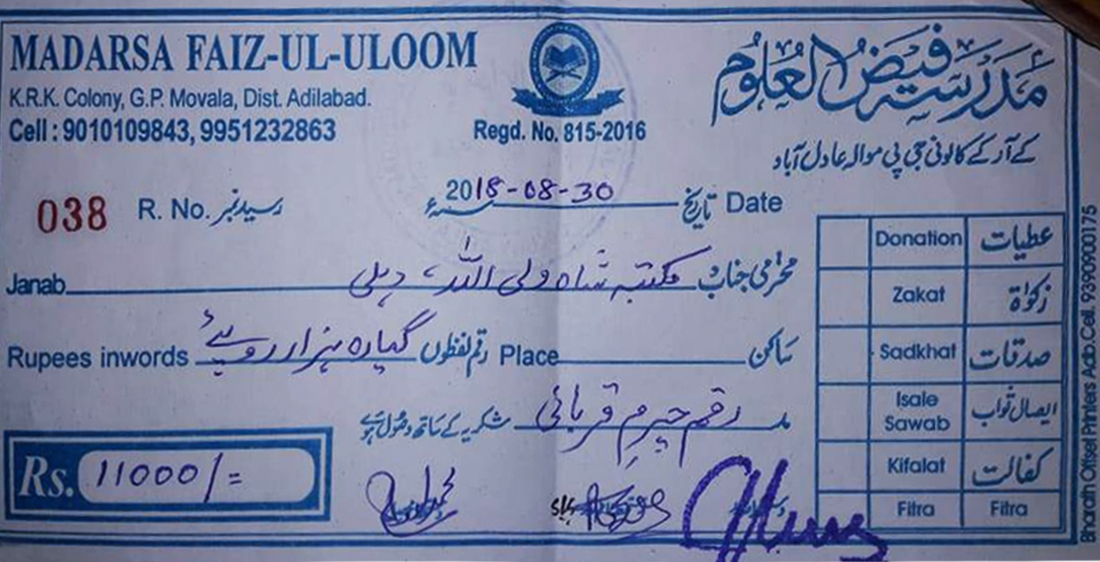 MADARSA FAIZ-UL-ULOOM
مدرسہ فیض العلوم
K.R.K. Colony, G.P. Movala, Dist. Adilabad.
کے آر کے کالونی جی پی موالہ عادل آباد
Cell : 9010109843, 9951232863
Regd. No. 815-2016
038 R. No. رسید نمبر
2018-08-30 تاریخ Date
Janab محترمی جناب مکتبہ شاہ ولی اللہ، دہلی
Rupees inwords رقم لفظوں گیارہ ہزار روپئے Place ساکن
مد رقم چرمِ قربانی شکریہ کے ساتھ وصول ہوئے
Rs. 11000/=
Donation عطیات
Zakat زکوٰۃ
Sadkhat صدقات
Isale Sawab ایصال ثواب
Kifalat کفالت
Fitra Fitra
Bharath Offset Printers Adb.Cell. 9390900175